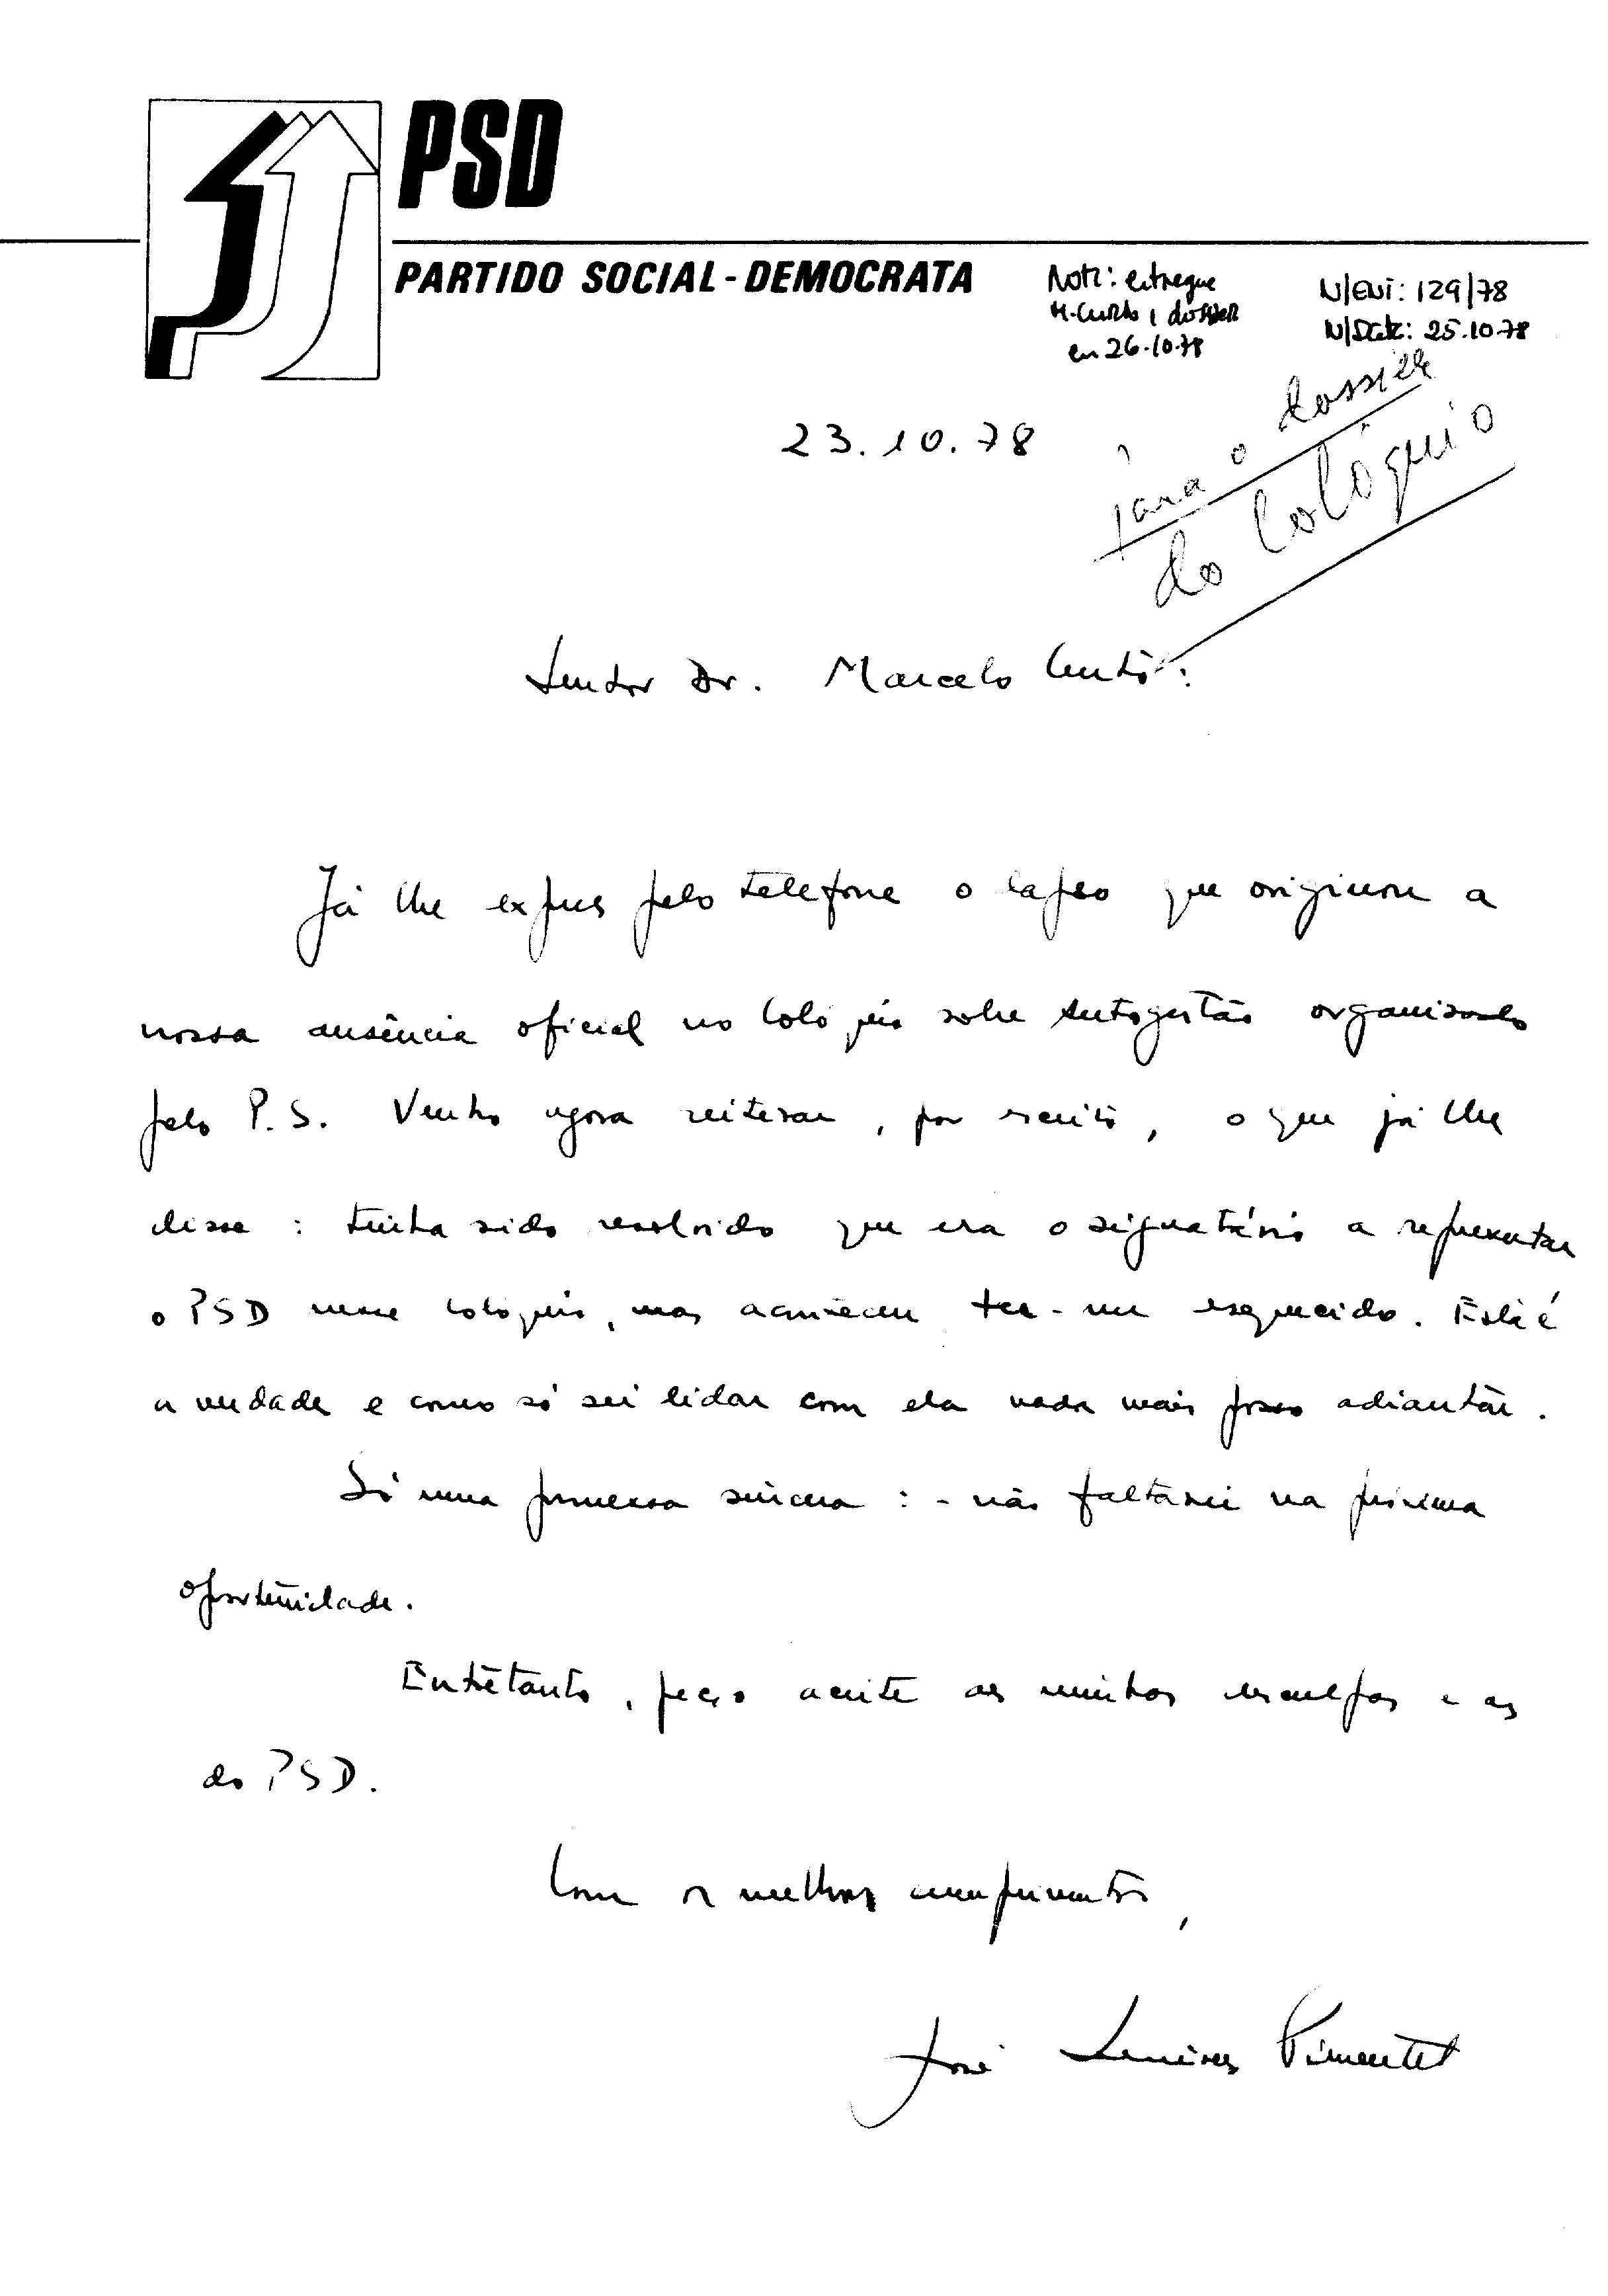 PSD
PARTIDO SOCIAL-DEMOCRATA
Nota: entregue
M. Curto 1 dossier
em 26.10.78
N/Ent: 129/78
N/Data: 25.10.78
23.10.78
Para o dossier
do Colóquio
Senhor Dr. Marcelo Curto:
Já lhe expus pelo telefone o lapso que originou a
nossa ausência oficial no Colóquio sobre Autogestão organizado
pelo P.S. Venho agora reiterar, por escrito, o que já lhe
disse: tinha sido resolvido que era o signatário a representar
o PSD nesse colóquio, mas aconteceu ter-me esquecido. Esta é
a verdade e como só sei lidar com ela nada mais posso adiantar.
Só uma promessa sincera: - não faltarei na próxima
oportunidade.
Entretanto, peço aceite as minhas desculpas e as
do PSD.
Com os melhores cumprimentos,
José Pimentel